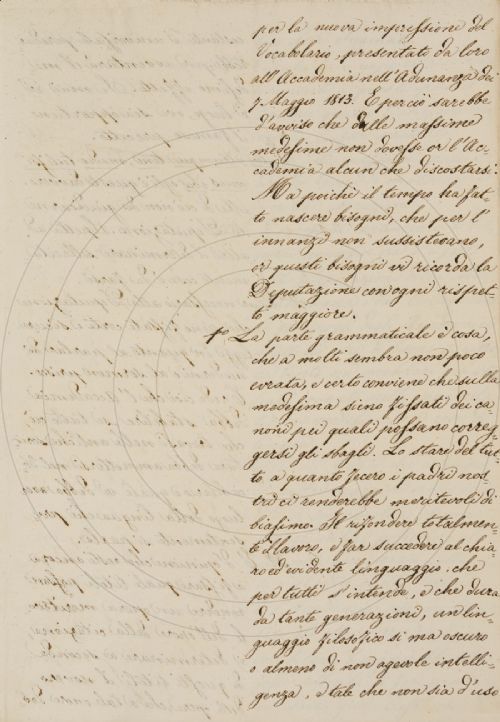 per la nuova impressione del
Vocabolario, presentato da loro
all'Accademia nell'Adunanza dei
7. Maggio 1813. E perciò sarebbe
d'avviso che dalle massime
medesime non dovesse or l'Ac-
cademia alcun che discostarsi.
Ma poichè il tempo ha fat-
to nascere bisogni, che per l'
innanzi non sussistevano,
or questi bisogni vi ricorda la
Deputazione con ogni rispet-
to maggiore.
1º La parte grammaticale è cosa,
che a molti sembra non poco
errata, e certo conviene che sulla
medesima sieno fissati dei ca
noni pei quali possano correg-
gersi gli sbagli. Lo stare del tut-
to a quanto fecero i padri nos-
tri ci renderebbe meritevoli di
biasimo. Il rifondere totalmen-
te il lavoro, e far succedere al chia-
ro ed evidente linguaggio, che
per tutti s'intende, e che dura
da tante generazioni, un lin-
guaggio filosofico si ma oscuro
o almeno di non agevole intelli-
genza, e tale che non sia d'uso